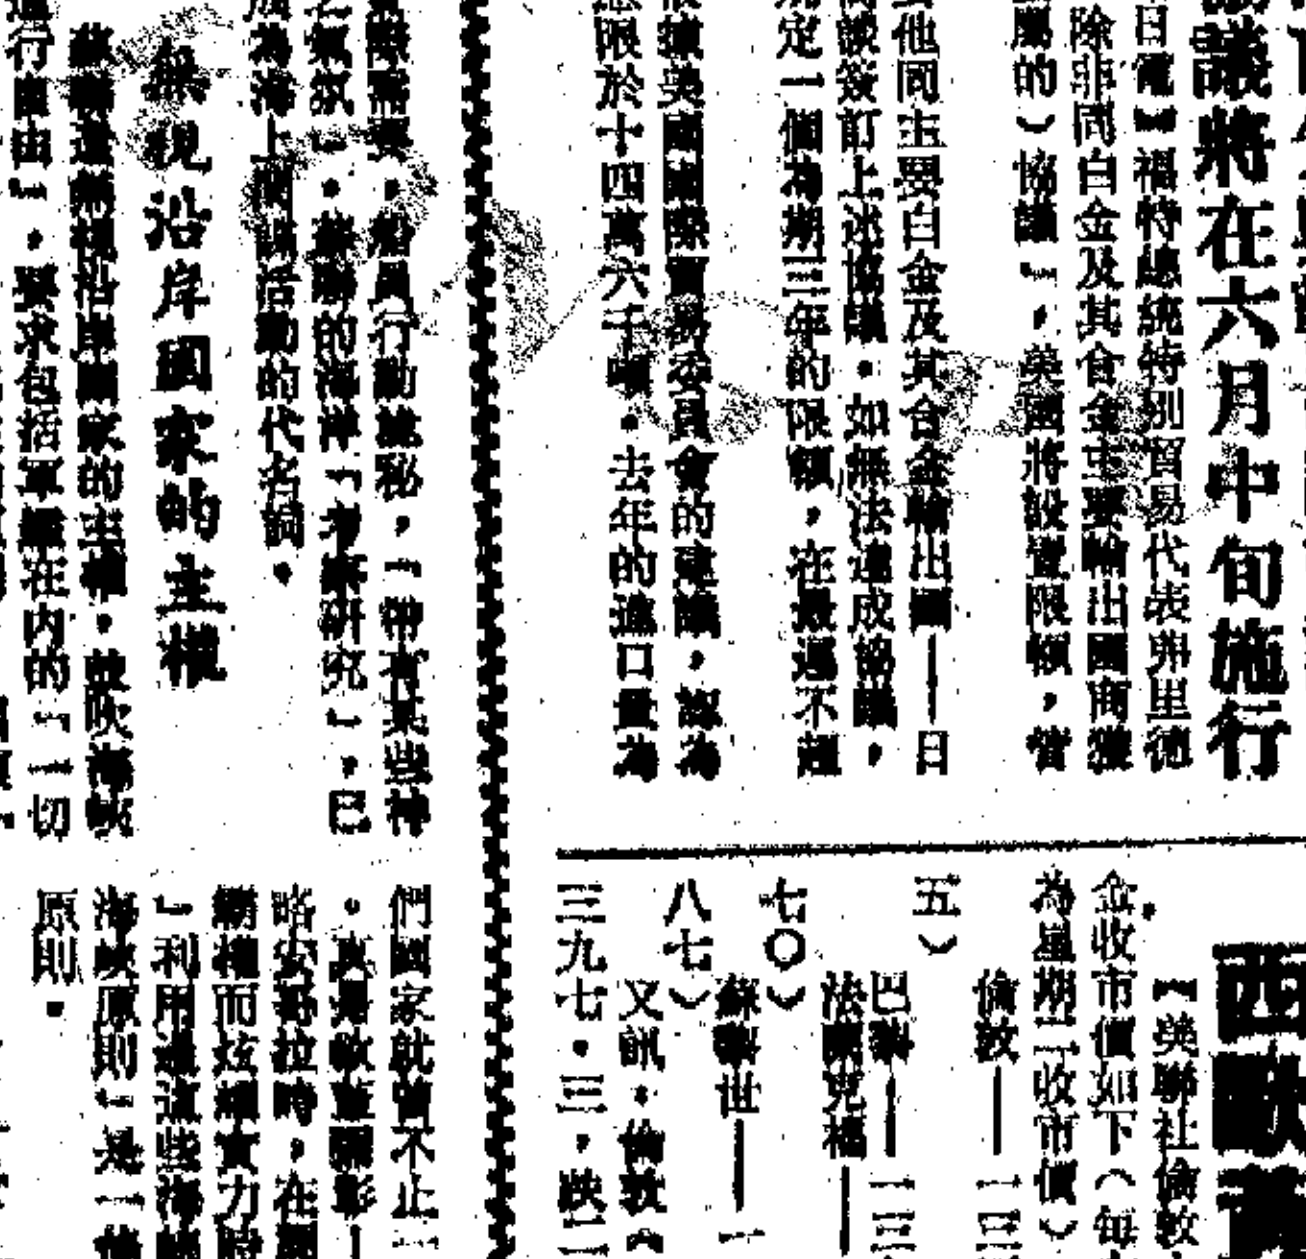 議將在六月中旬施行
日電】福特總統特別貿易代表鄧里德
除非同白金及其合金主要輸出國商獲
屬的)協議』,美國將設置限額,管
他同主要白金及其合金輸出國——日
議簽訂上述協議。如無法達成協議,
定一個為期三年的限額,在最遲不超
據美國國際貿易委員會的建議,認為
限於十四萬六千噸。去年的進口量為
際需要,船員行動詭秘,「帶有某些神
之氣氛」。蘇聯的海洋「考察研究」,已
成為海上間諜活動的代名詞。
無視沿岸國家的主權
蘇聯還無視沿岸國家的主權,鼓吹海峽
行自由」,要求包括軍艦在內的「一切
西歐
【美聯社倫敦
金收市價如下(每
為星期二收市價)
倫敦——一三
五)
巴黎——一三
法蘭克福——
七〇)
蘇黎世——一
八七)
又訊:倫敦
三九七・三,跌二
們國家就曾不止一
略安哥拉時,在
霸權而炫耀實力時
」利用過這些海峽
海峽原則」是一條
原則。